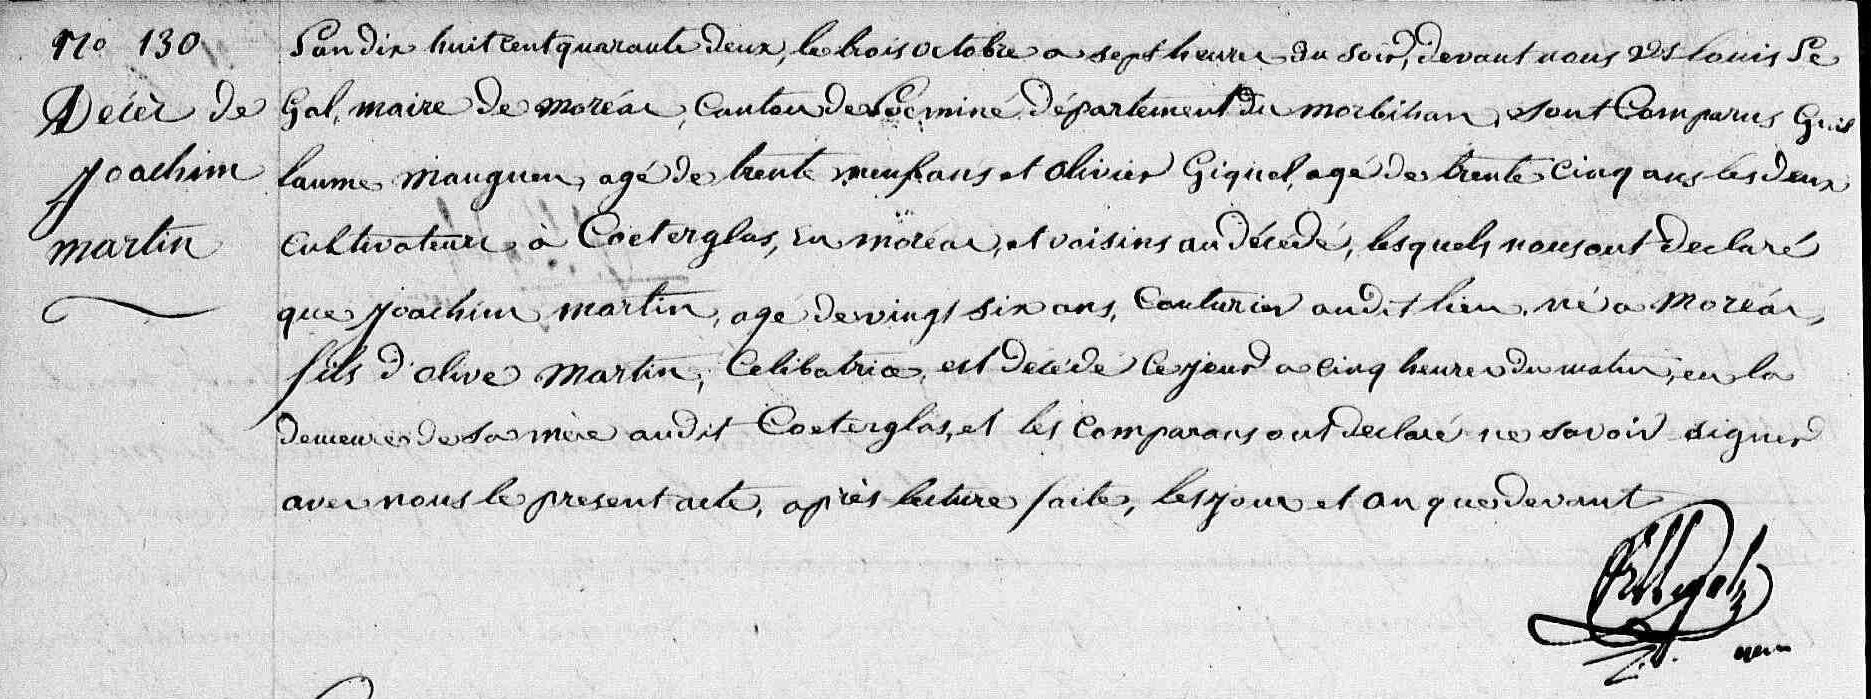 No 130
Décèr de
Joachim
martin
L'an dix huit cent quarante deux, le trois octobre a sept heures du soir, devant nous Louis Le
Gal, maire de moréac, Canton de Locminé, département du morbihan, sont Comparus Guil
laume mauguen, agé de trente neuf ans et olivier Giquel, agé de trente Cinq ans les deux
cultivateurs à Coeterglas, en moréac, et voisins au décédé, lesquels nous ont declaré
que joachim martin, agé de vingt six ans, Couturier audit lieu, né a Moréac,
fils d'olive Martin, Celibatrice, est décédé ce jour a cinq heures du matin, en la
demeure de sa mère audit Coeterglas, et les Comparans ont declaré ne savoir signer
avec nous le present acte, après lecture faite, les jour et an que devant